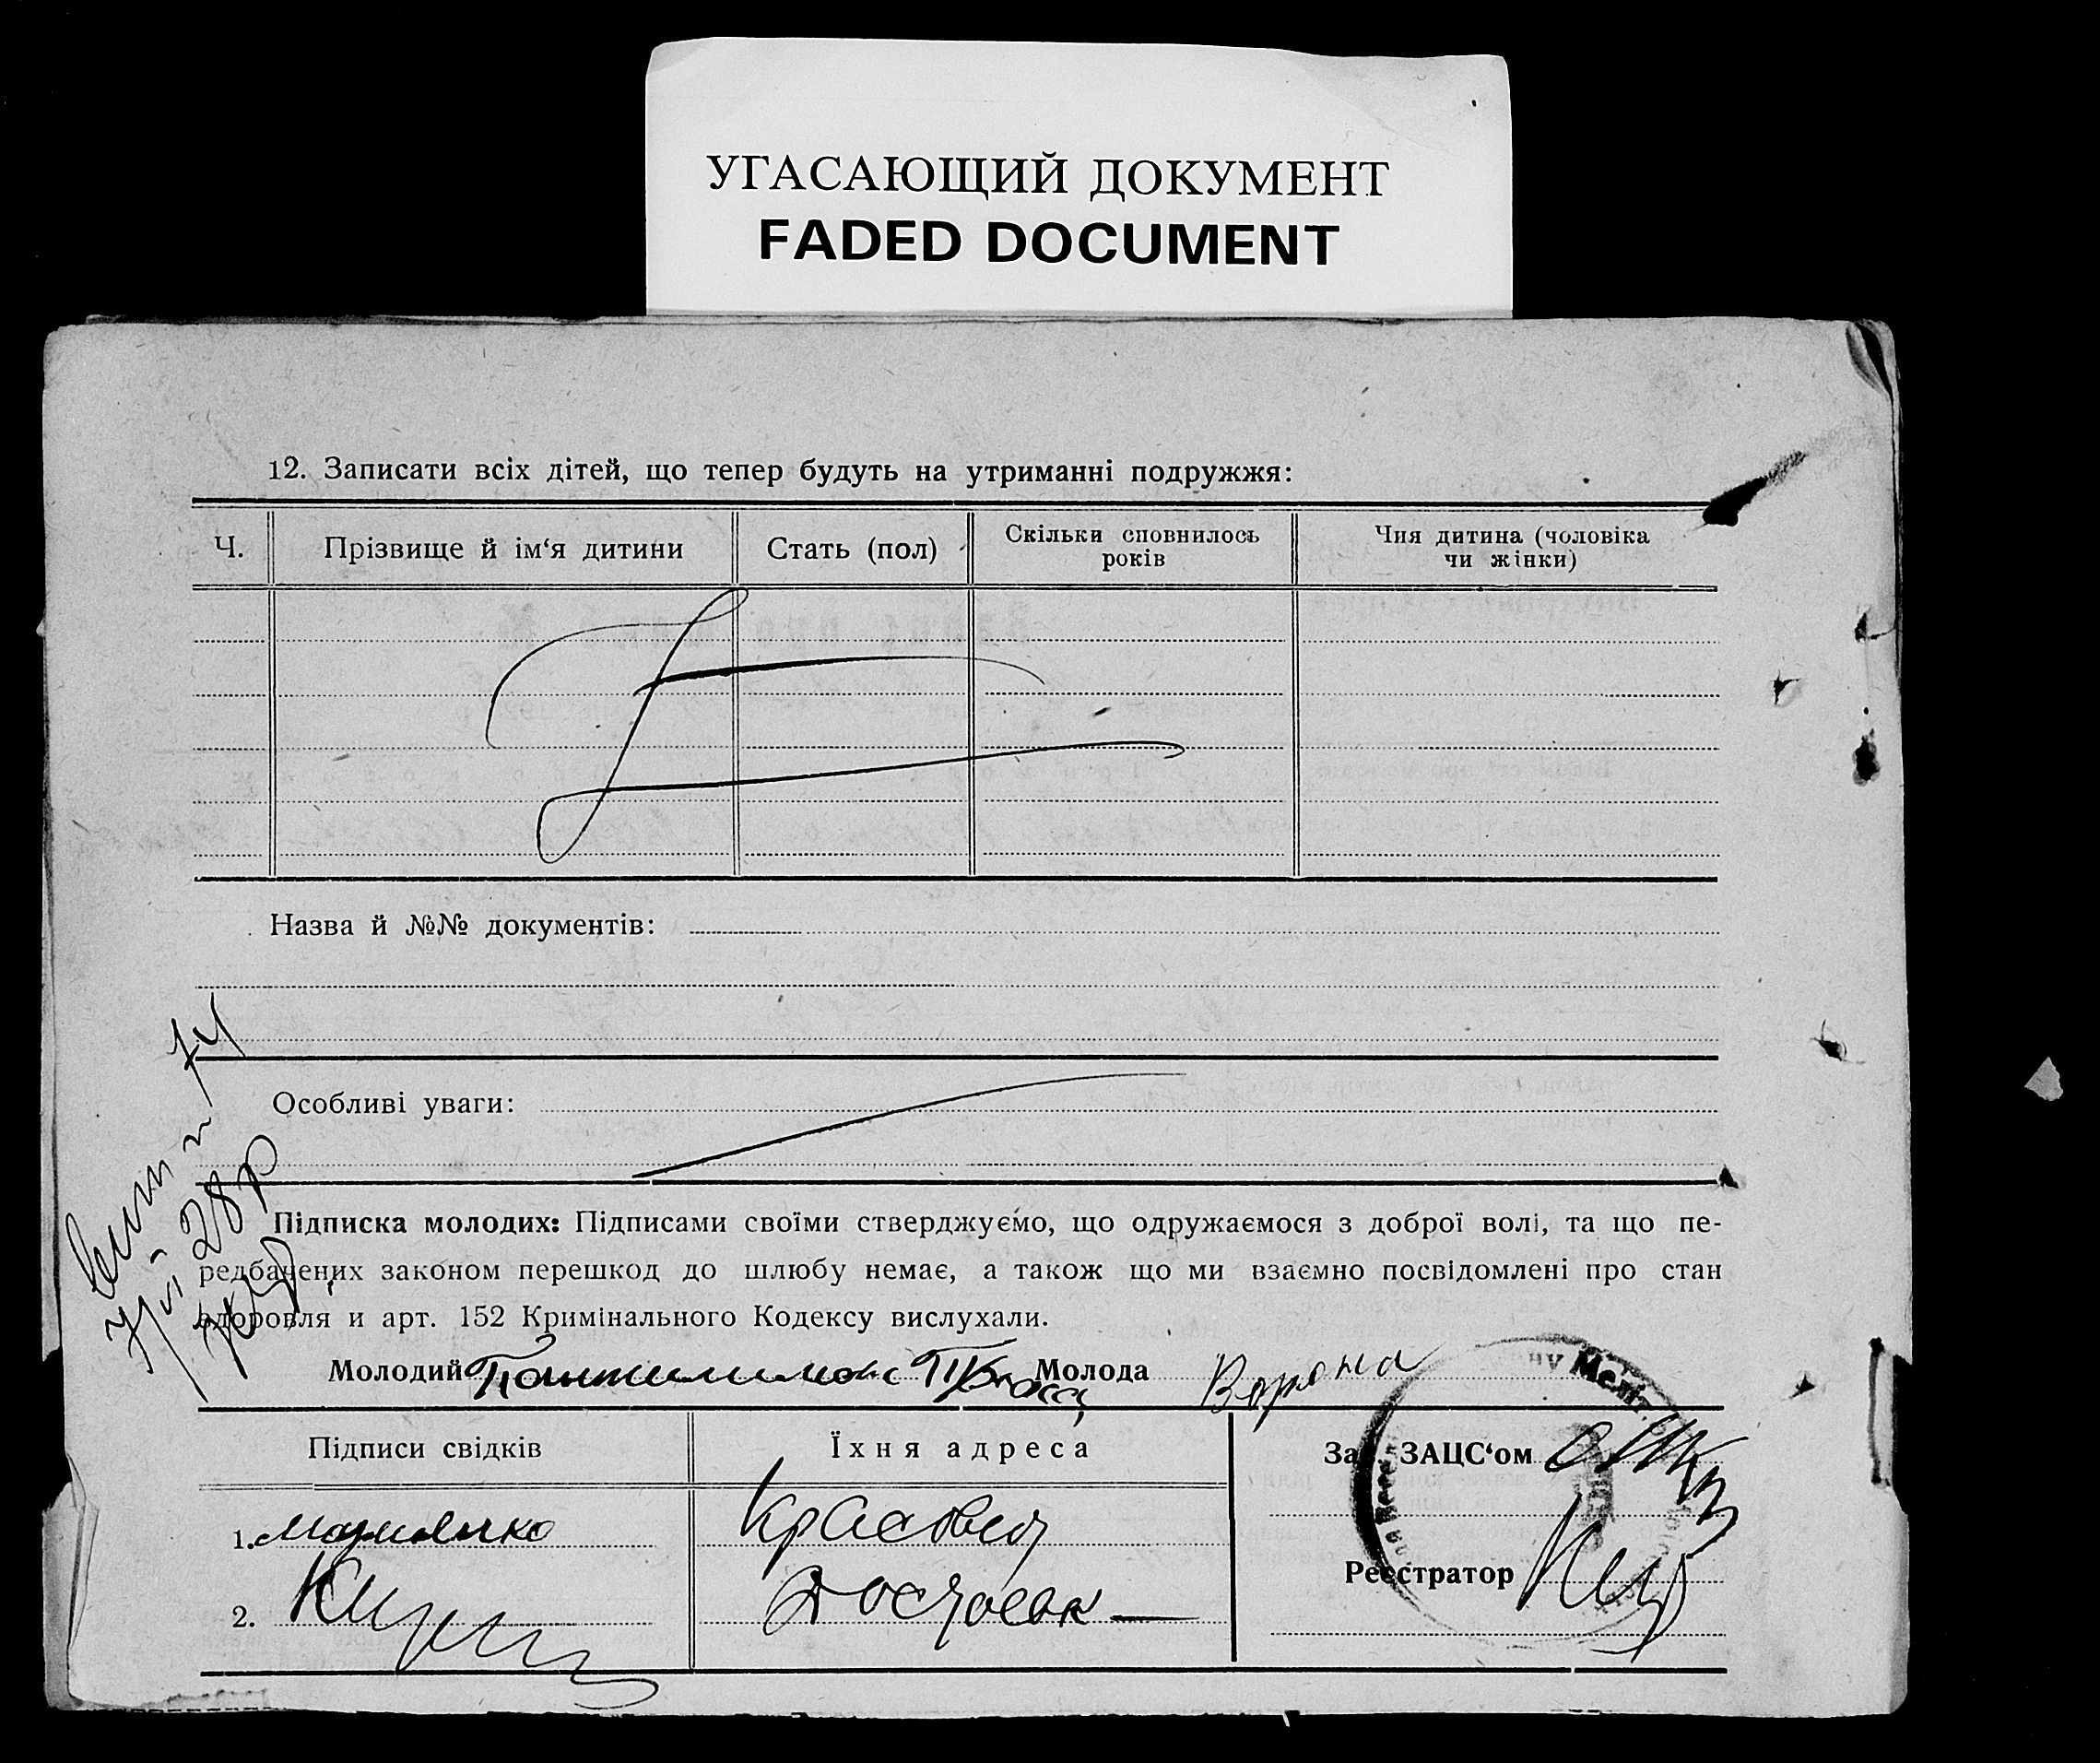 УГАСАЮЩИЙ ДОКУМЕНТ
FADED DOCUMENT
12. Записати всіх дітей, що тепер будуть на утриманні подружжя:
Ч.
Прізвище й ім‘я дитини
Стать (пол)
Скільки сповнилось
років
Чия дитина (чоловіка
чи жінки)
Назва й №№ документів:
Особливі уваги:
28р
Підписка молодих: Підписами своїми стверджуємо, що одружаємося з доброї волі, та що пе-
редбачених законом перешкод до шлюбу немає, а також що ми взаємно посвідомлені про стан
здоровля и арт. 152 Кримінального Кодексу вислухали.
Молодий
Молода
Підписи свідків
Їхня адреса
Зав. ЗАЦС‘ом
1.
2.
Реєстратор